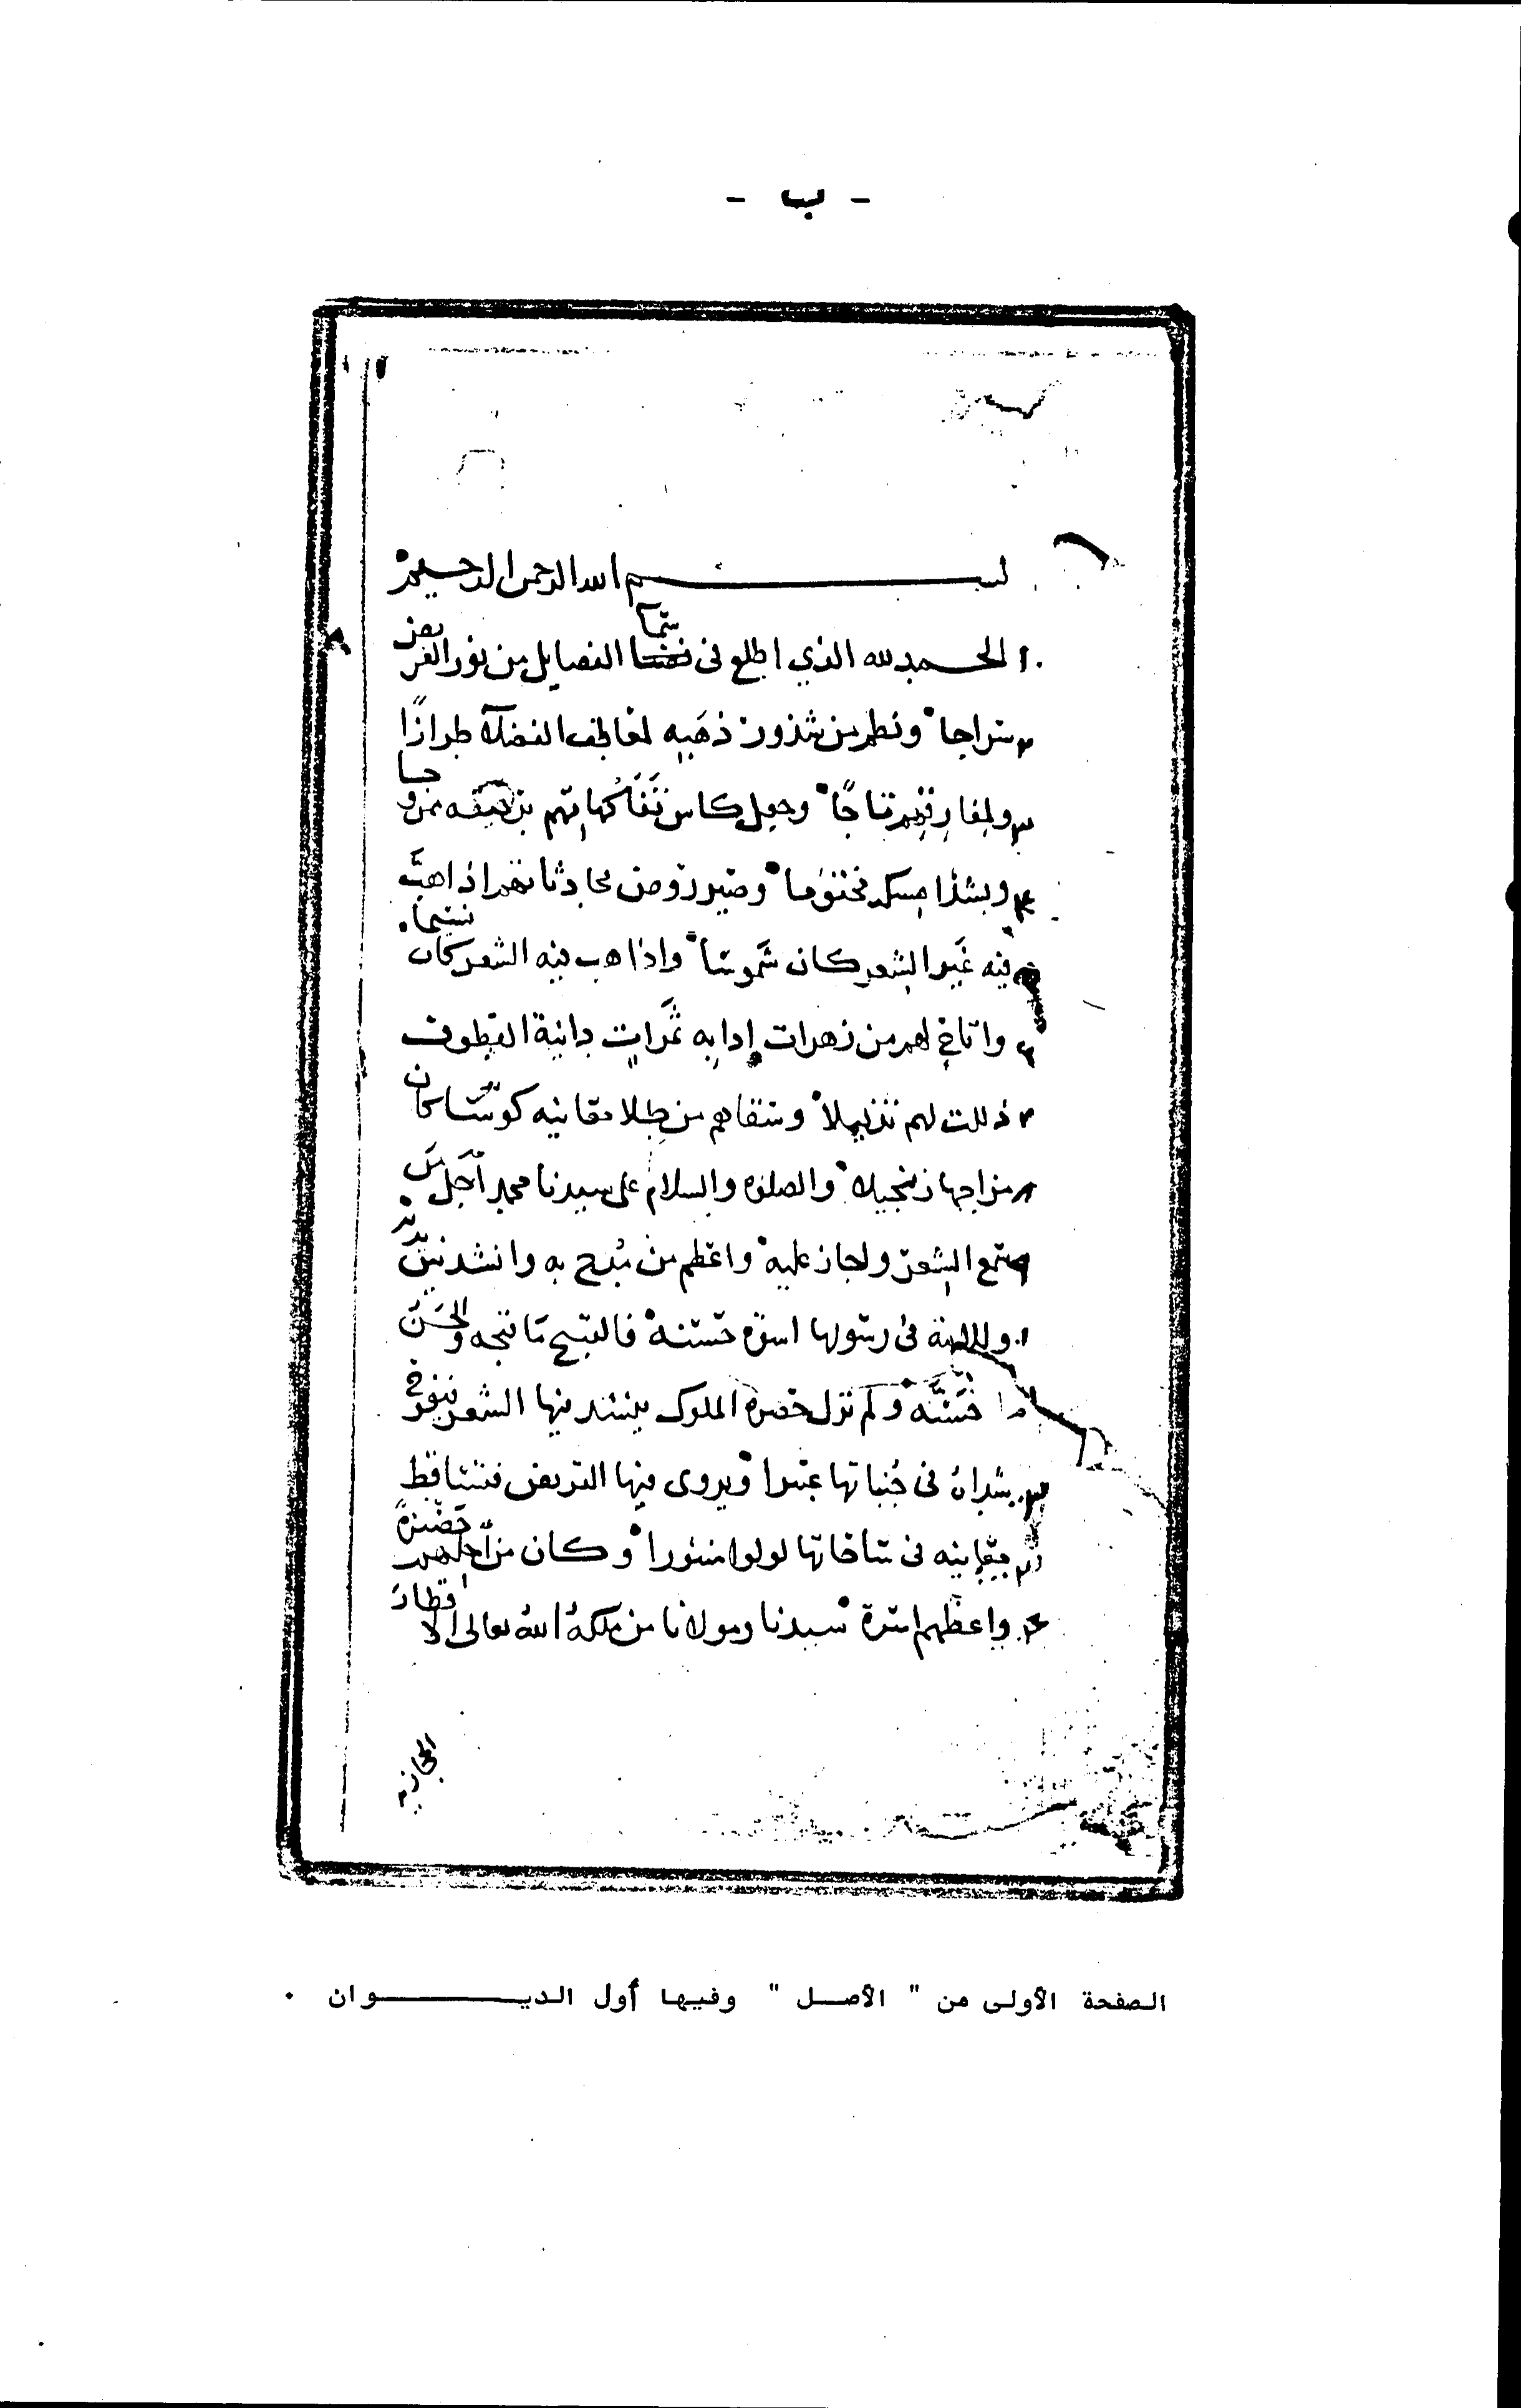 - ب -
بسم الله الرحمن الرحيم
١ الحمد لله الذي اطلع في سما الفضايل من نور القريض
٢ سراجا ونظم من شذور ذهبه لمعاطف الفضلآ طرازًا
٣ ولمفارِقِهِم تاجًا وجعل كاس تَفَاكُهاتِهم برحيقه ممزوجا
٤ وبشذا مسكه مختومًا وصير روض محادثاتهم اذا هبَّ
فيه غَير الشعر كان سَموسًا واذا هب فيه الشعر كان نسيما
٦ واتاح لهم من زهرات إدابه ثمَراتٍ دانية القطوف
٧ ذللت لهم تذليلا وسقاهم من طلا معانيه كوسًا كان
٨ مزاجها زنجبيلا والصلوه والسلام على سيدنا محمد اَجَلّ من
٩ سمع الشِعرَ واجاز عليه واعظم من مُدح به وانشد بين يديه
١٠ وللامة في رسولها اسوَه حسنة فالقبيح مَا قبحه والحَسَنُ
ما حَسَّنَه ولم تزل حضرة الملوك ينشد فيها الشعر فيفوح
شداهُ في جَنباتها عبيرا ويروى فيها القريض فتتساقط
معانيه في ساحاتها لولوا منثورا وكان من اَجلهم حَضْرةً
واعظهم اسرة سيدنا ومولانا من ملكهُ اللهُ تعالى الاقطارَ
الحجازيه
الصفحة الأولى من " الأصل " وفيها أول الديوان .